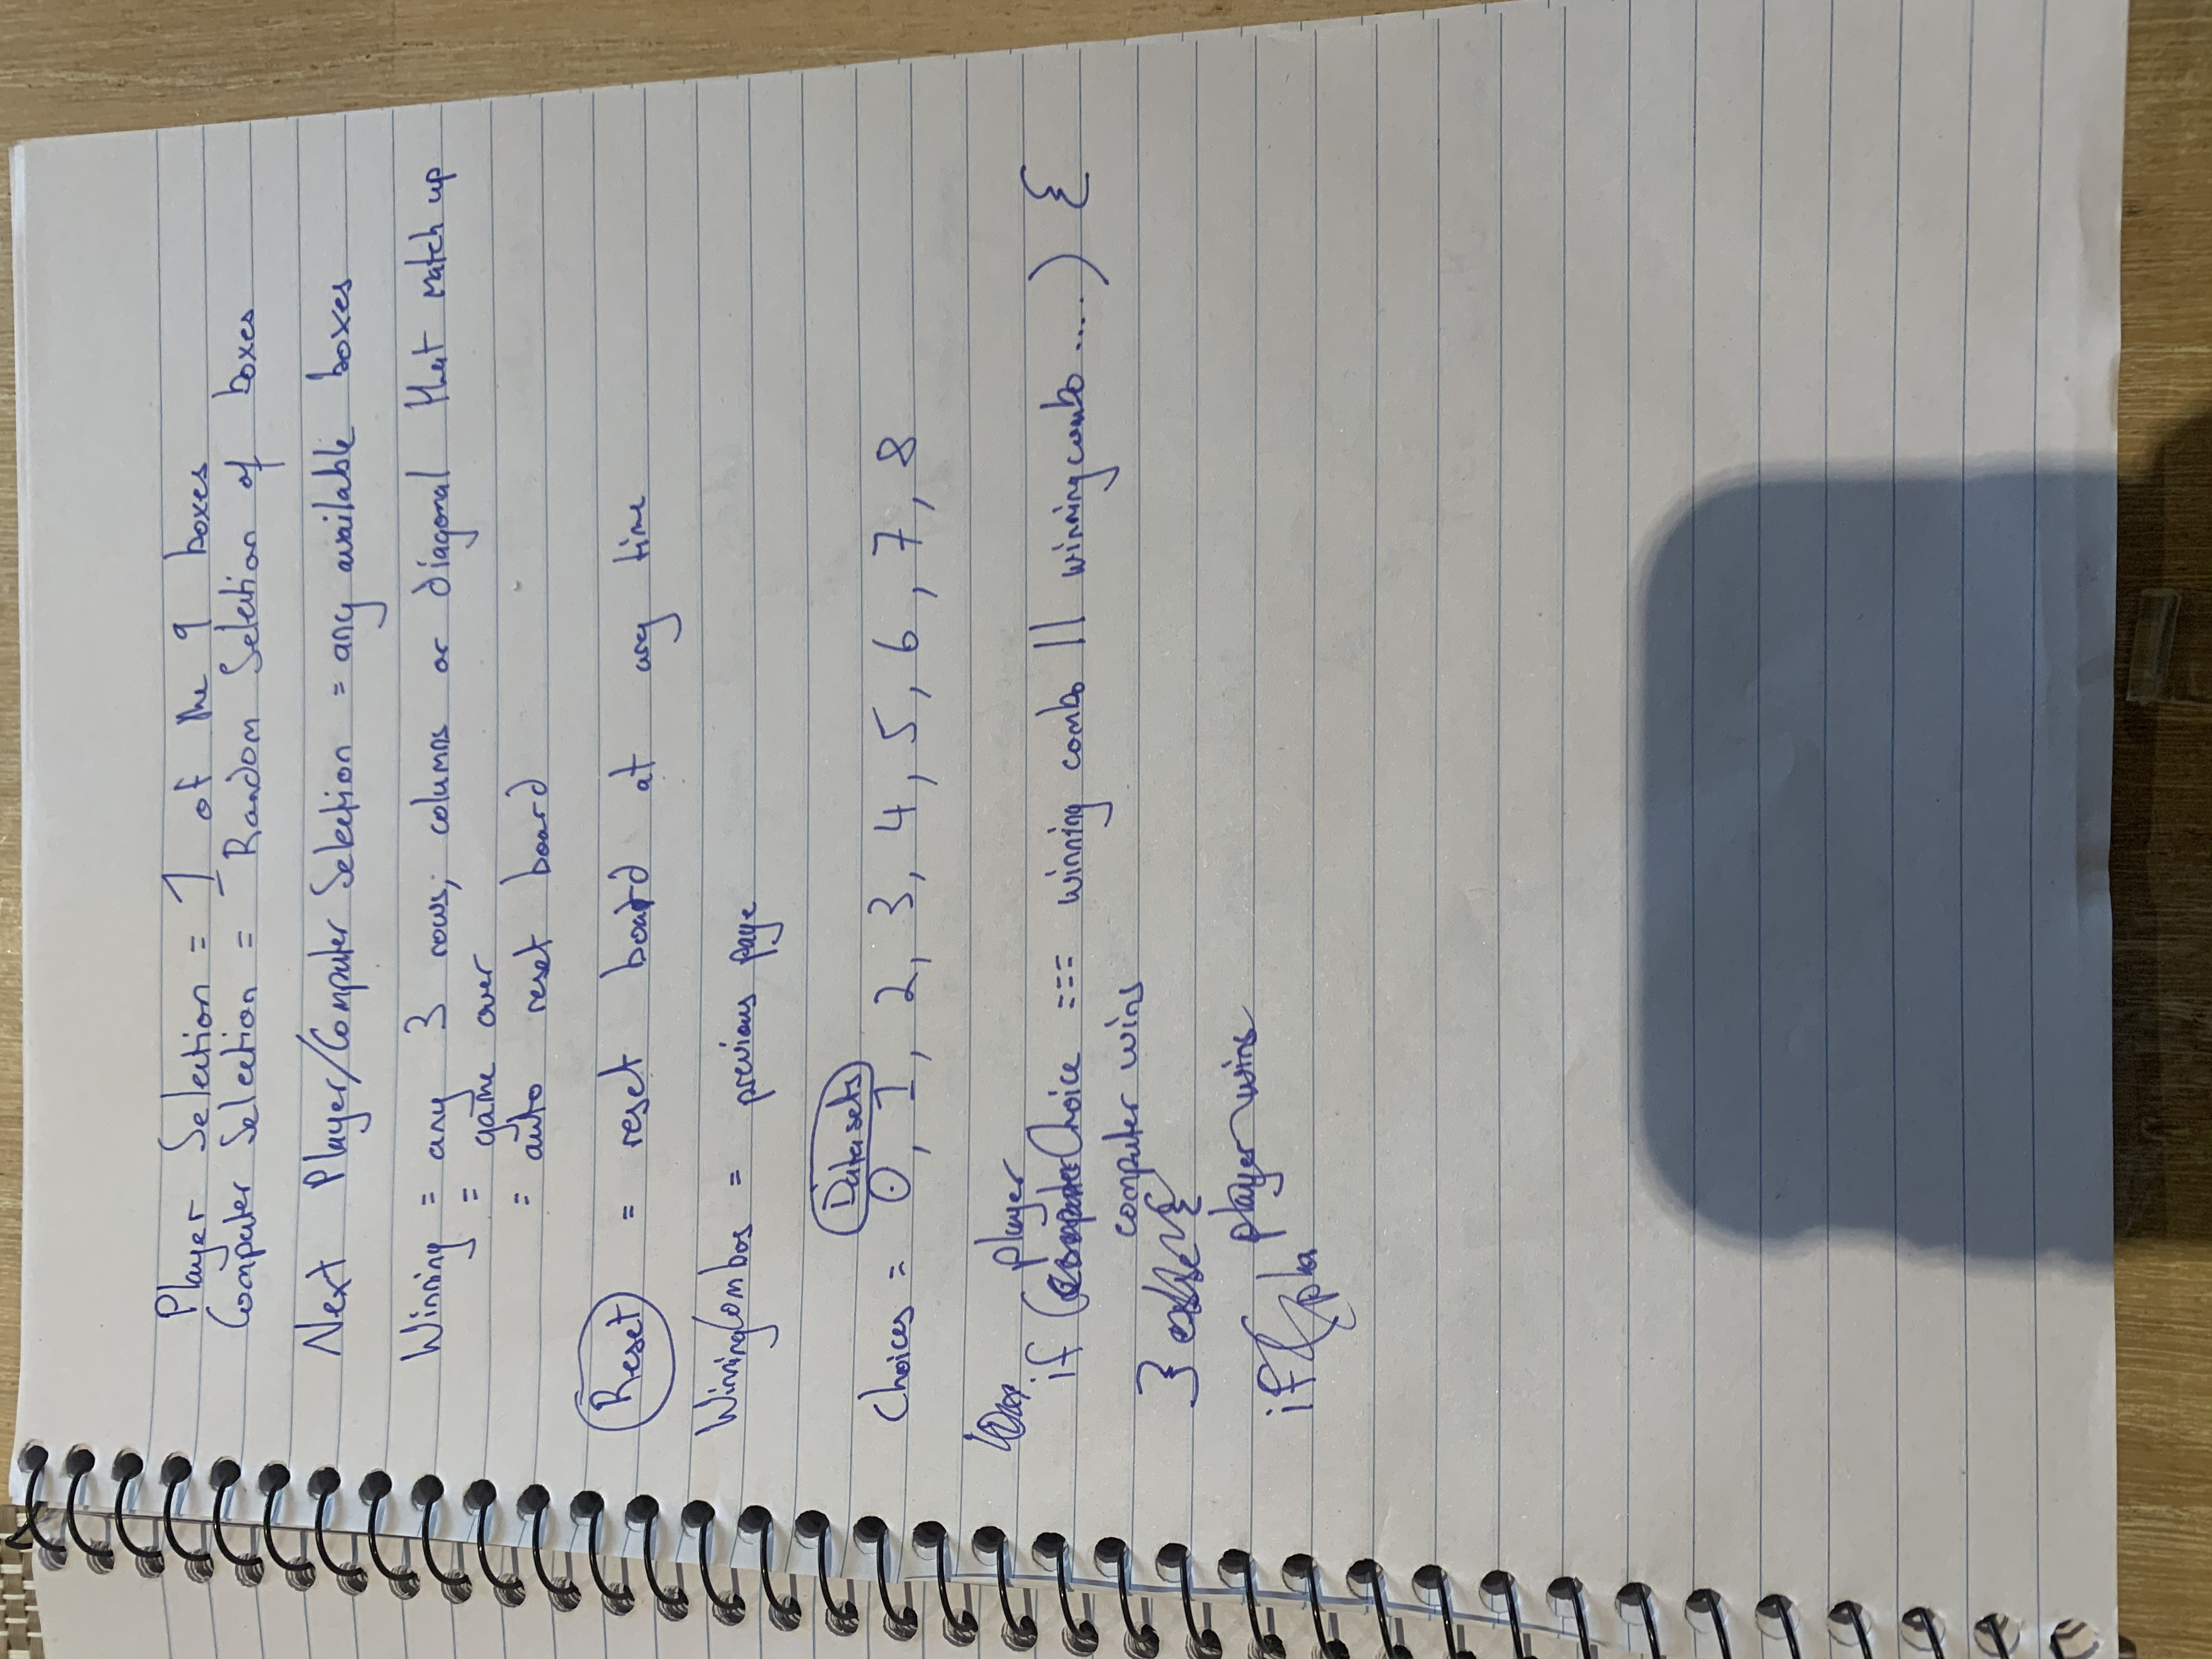 Player Selection = 1 of the 9 boxes
Computer Selection = Random Selection of boxes
Next Player/Computer Selection = any available boxes
Winning = any 3 rows, columns or diagonal that match up
= game over
= auto reset board
Reset = reset board at any time
WinningCombos = previous page
Datasets
Choices = 0, 1, 2, 3, 4, 5, 6, 7, 8
player
if (computerChoice === winning combo || winningcombo ....) {
computer wins
} else {
player wins
if (pla